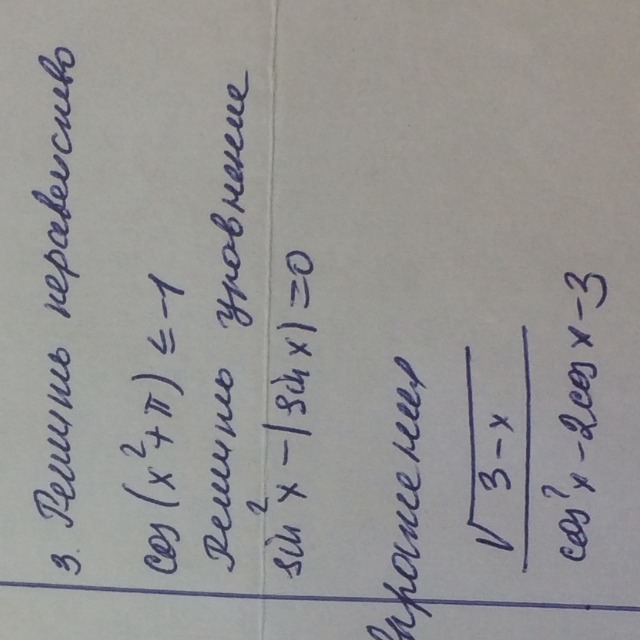 3. Решить неравенство
cos(x²+π) ≤ -1
Решить уровнение
sin²x - |sin x| = 0
выражения
√(3-x)
cos²x - 2cos x - 3